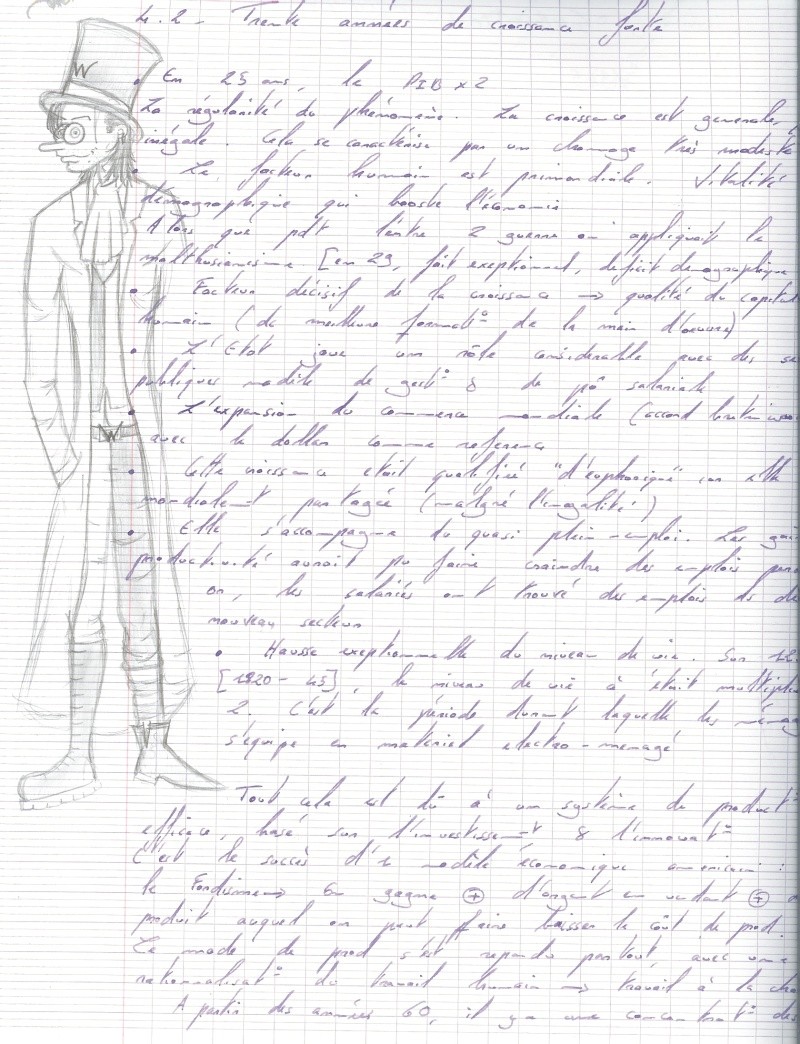 4.2 - Trente années de croissance forte
W
• En 25 ans, le PIB x 2
La régularité du phénomène. La croissance est generale,
inégale. Cela se caractérise par un chomage très modeste
• Le facteur humain est primordiale. Vitalité
démographique qui booste l'économie
Alors que pdt l'entre 2 guerre on appliquait le
malthusianisme [en 29, fait exeptionnel, deficit demographique
• Facteur décisif de la croissance → qualité du capital
humain (de meilleure format° de la main d'oeuvre)
• L'Etat joue un rôle considerable avec des se
publiques modèle de gest° & de pô salariale
• L'expansion du commerce mondiale (accord
avec le dollar comme reference
W
• Cette croissance etait qualifié car elle
mondialement partagée (malgré l'inégalité)
• Elle s'accompagne du quasi plein-emploi. Les gai
productivité aurait pu faire craindre des emplois
or, les salariés ont trouvé des emplois ds de
nouveau secteur
• Hausse exeptionnelle du niveau de vie. Sur
[1820 - 45], le niveau de vie à était multiplié
2. C'est la période durant laquelle les ménag
s'équipe en matériel electro-menagé
Tout cela est dû à un système de product°
efficace, basé sur l'investissemt & l'innovat°
C'est le succès d'1 modèle économique americain :
le Fordisme → On gagne + d'argent en vendant +
produit auquel on peut faire baisser le coût de prod.
Ce mode de prod s'est repandu partout, avec une
rationnalisat° du travail humain → travail à la cha
A partir des années 60, il y a une concentrat° des